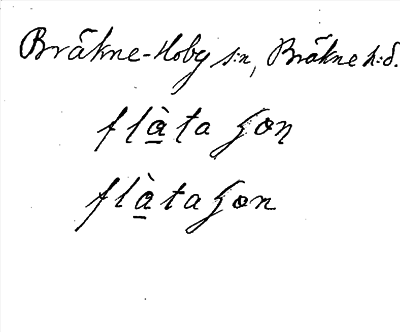 Bräkne-Hoby s:n, Bräkne h:d.
flà̱ta ɧon
flà̱taɧon